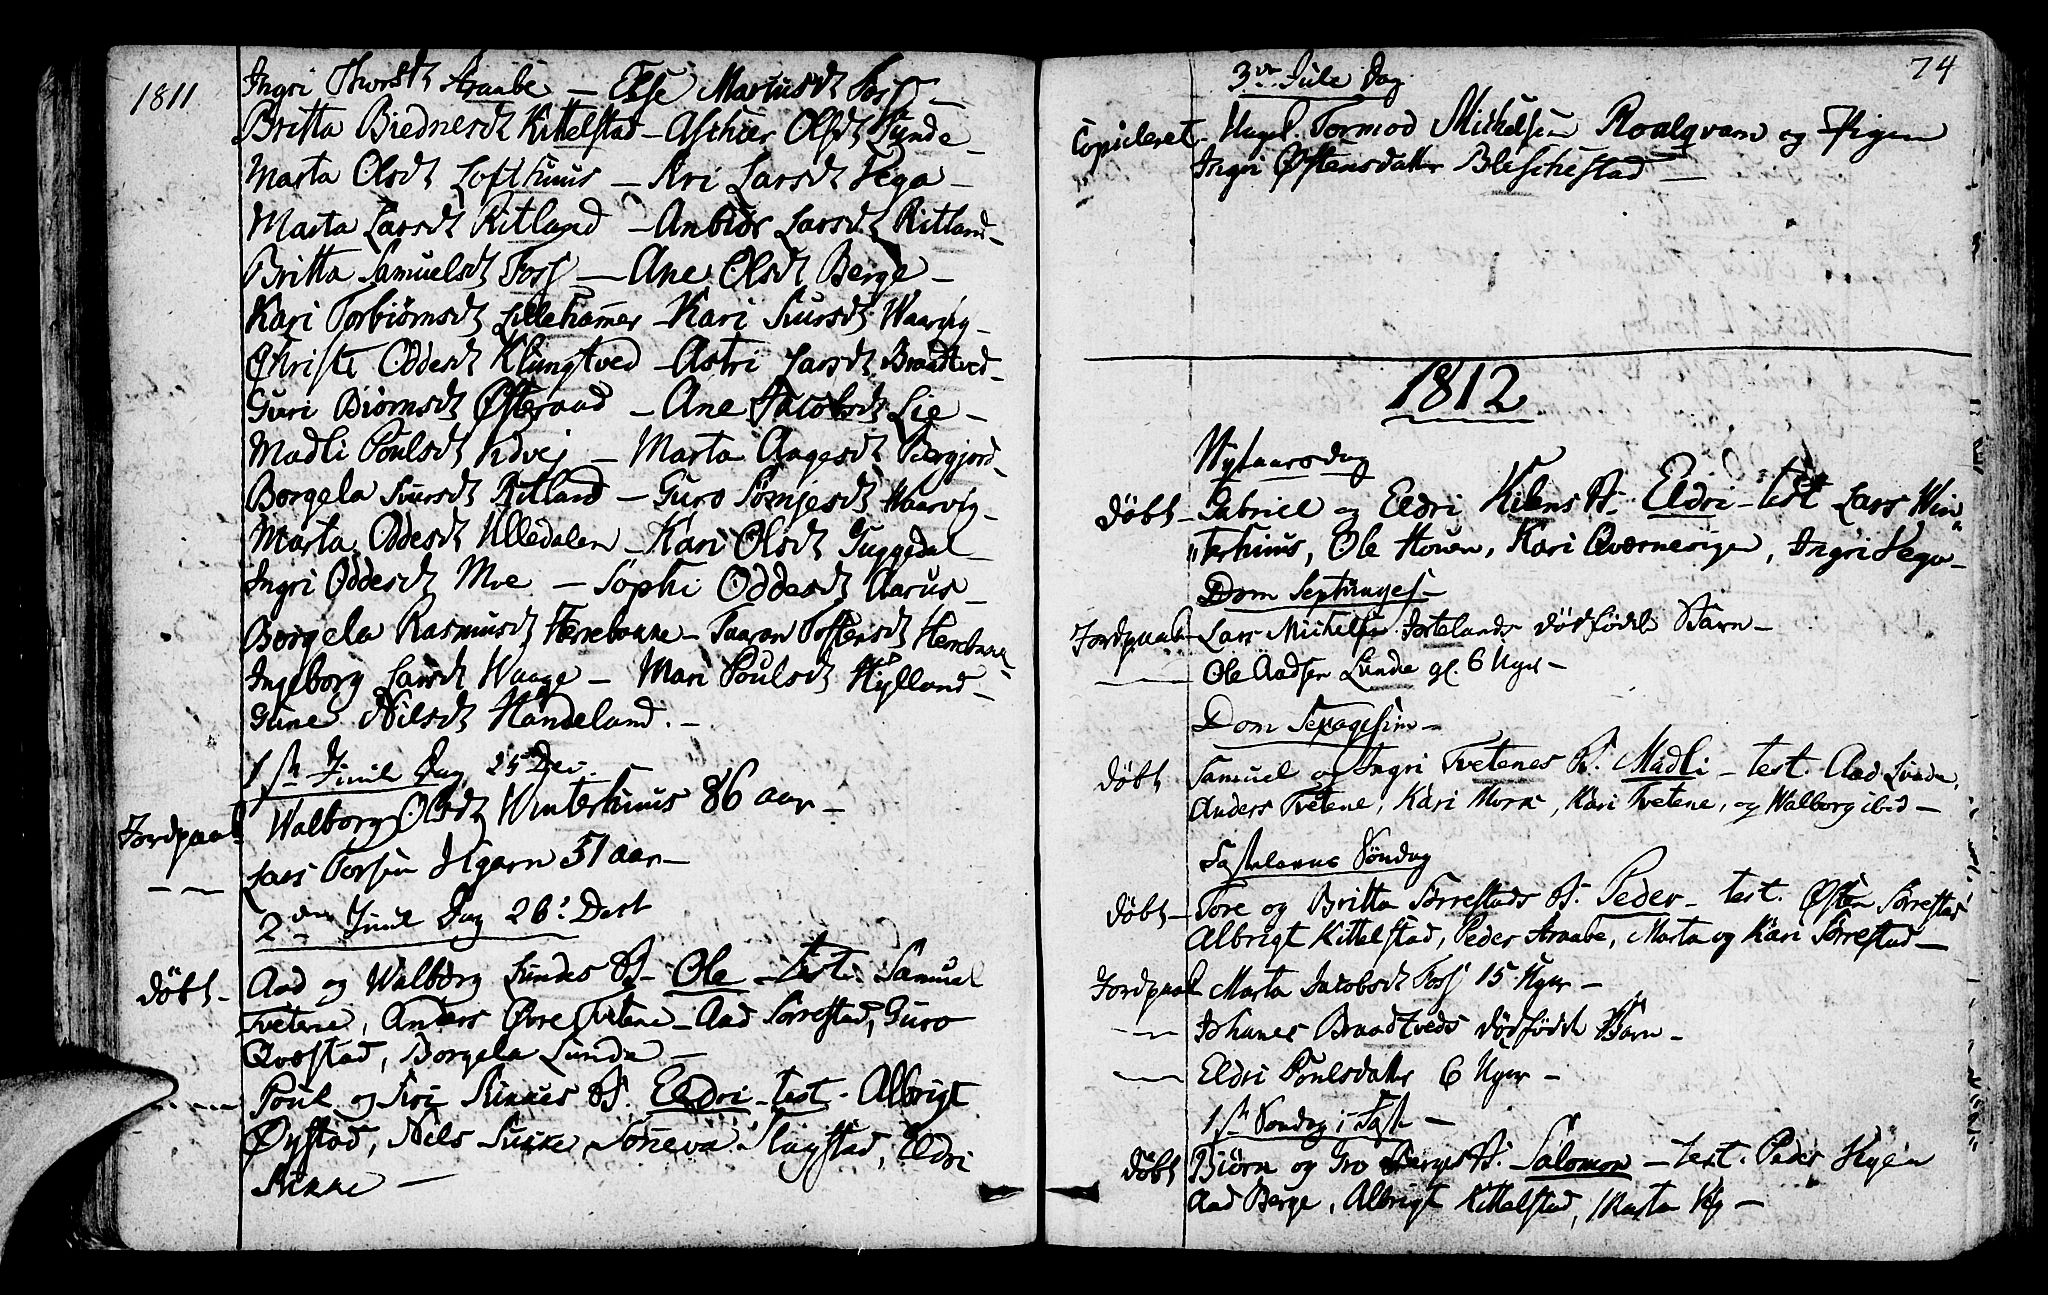 1811
Ingri Thorsdt Araabe — Else Mariusdt Foss —
Britta Biednesdt Kittelstad — Aschier Olsdt Lunde —
Marta Olsdt Lofthuus — Siri Larsdt Vega —
Marta Larsdt Ritland — Anbiør Larsdt Ritland —
Britta Samuelsdt Foss — Ane Olsdt Berge —
Kari Torbiørnsdt Lillehamer — Kari Siursdt Waarvig —
Christi Oddesdt Klungtved — Astri Larsdt Brandtved —
Guri Biørnsdt Østeraad — Ane Jacobsdt Lie —
Madli Poulsdt — Marta Aagesdt Bergjord —
Borgela Siursdt Ritland — Guro Sømjesdt Waarvig —
Marta Oddesdt Ulledalen — Kari Olsdt Guggedal
Ingri Oddesdt Moe — Sophi Oddesdt Aarus —
Borgela Rasmusdt Herrebakke — Taaran Tostensdt
Ingeborg Larsdt Waage — Mari Poulsdt Hylland —
Gune Nilsdt Handeland. —
1ste Juule Dag 25 Dec.
Jordpaak. Walborg Olsdt Winterhuus 86 aar —
— — Lars Torsen 51 aar —
2den Juul Dag 26 Dec
Døbt — Aad og Walborg Lundes B. Ole — test. Samuel
Tvetene, Anders Øvre Tvetene — Aad Sørrestad, Guro
Qvæstad, Borgela Lunde —
— — Poul og Siri Rikkes B. Eldri — test. Albrigt
Øystad, Nils Slugstad, Eldri
Rikke —
74
3de Jule Dag
Copuleret. Ungk. Tormod Michelsen Roalqvam og Pigen
Ingri Østensdatter Bleschestad —
1812
Nytaarsdag
Døbt — Gabriel og Eldri Kilens B. Eldri — test Lars Win„
„terhuus, Ole Houen, Kari Qværnevigen, Ingri Vega —
Dom Septuages —
Jordpaak — Lars Michelsen Jortelands dødfødt Barn —
— Ole Aadsen Lunde gl. 6 Uger —
Dom Sexagesim —
Døbt Samuel og Ingri Tvetenes B. Madli — test. Aad Lunde,
Anders Tvetene, Kari Moræ, Kari Tvetene, og Walborg ibid —
Fastelavns Søndag
Døbt — Tore og Britta Sørrestads B. Peder — test. Østen Sørrestad
Albrigt Kittelstad, Peder Araabe, Marta og Kari Sørrestad —
Jordpaak — Marta Jacobsdt Foss 15 Uger —
— — Johanes Brandtveds dødfødt Barn —
— Eldri Poulsdatter 6 Uger —
1ste Søndag i Faste —
Døbt Biørn og Gro Berges B. Salomon — test. Peder
Aad Berge, Albrigt Kittelstad, Marta —